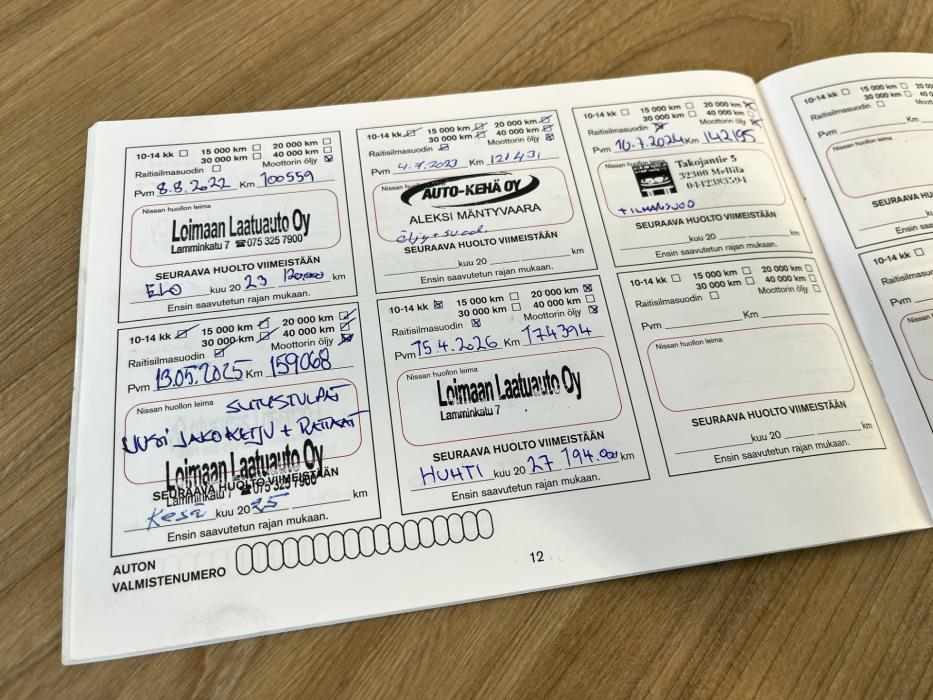 10-14 kk 15 000 km 20 000 km
30 000 km 40 000 km
Raitisilmasuodin Moottorin öljy
Pvm 8.8.2022 Km 100559
Nissan huollon leima
Loimaan Laatuauto Oy
Lamminkatu 7 ☎075 325 7900
SEURAAVA HUOLTO VIIMEISTÄÄN
ELO kuu 20 23 120.000 km
Ensin saavutetun rajan mukaan.
10-14 kk 15 000 km 20 000 km
30 000 km 40 000 km
Raitisilmasuodin Moottorin öljy
Pvm 4.7.2023 Km 121431
Nissan huollon leima
AUTO-KEHÄ OY
ALEKSI MÄNTYVAARA
öljy + suod.
SEURAAVA HUOLTO VIIMEISTÄÄN
kuu 20 km
Ensin saavutetun rajan mukaan.
10-14 kk 15 000 km 20 000 km
30 000 km 40 000 km
Raitisilmasuodin Moottorin öljy
Pvm 10.7.2024 Km 142195
Nissan huollon leima
Takojantie 5
32300 Mellilä
0442383594
+ ILMANSUOD
SEURAAVA HUOLTO VIIMEISTÄÄN
kuu 20 km
Ensin saavutetun rajan mukaan.
10-14 kk 15 000 km 20 000 km
30 000 km 40 000 km
Raitisilmasuodin Moottorin öljy
Pvm 13.05.2025 Km 159068
Nissan huollon leima
SYTYSTULPAT
UUSI JAKOKETJU + RATTAAT
Loimaan Laatuauto Oy
SEURAAVA HUOLTO VIIMEISTÄÄN
Lamminkatu 7 ☎075 325 7900
Kesä kuu 20 km
Ensin saavutetun rajan mukaan.
10-14 kk 15 000 km 20 000 km
30 000 km 40 000 km
Raitisilmasuodin Moottorin öljy
Pvm 15.4.2026 Km 174394
Nissan huollon leima
Loimaan Laatuauto Oy
Lamminkatu 7
SEURAAVA HUOLTO VIIMEISTÄÄN
HUHTI kuu 20 27 194.000 km
Ensin saavutetun rajan mukaan.
10-14 kk 15 000 km 20 000 km
30 000 km 40 000 km
Raitisilmasuodin Moottorin öljy
Pvm Km
Nissan huollon leima
SEURAAVA HUOLTO VIIMEISTÄÄN
kuu 20 km
Ensin saavutetun rajan mukaan.
AUTON
VALMISTENUMERO
12
10-14 kk 15 000 km
30 000 km
Raitisilmasuodin
Pvm Km
Nissan huollon leima
SEURAAVA
kuu
Ensin
10-14 kk
Raitisilmasuodin
Pvm
Nissan